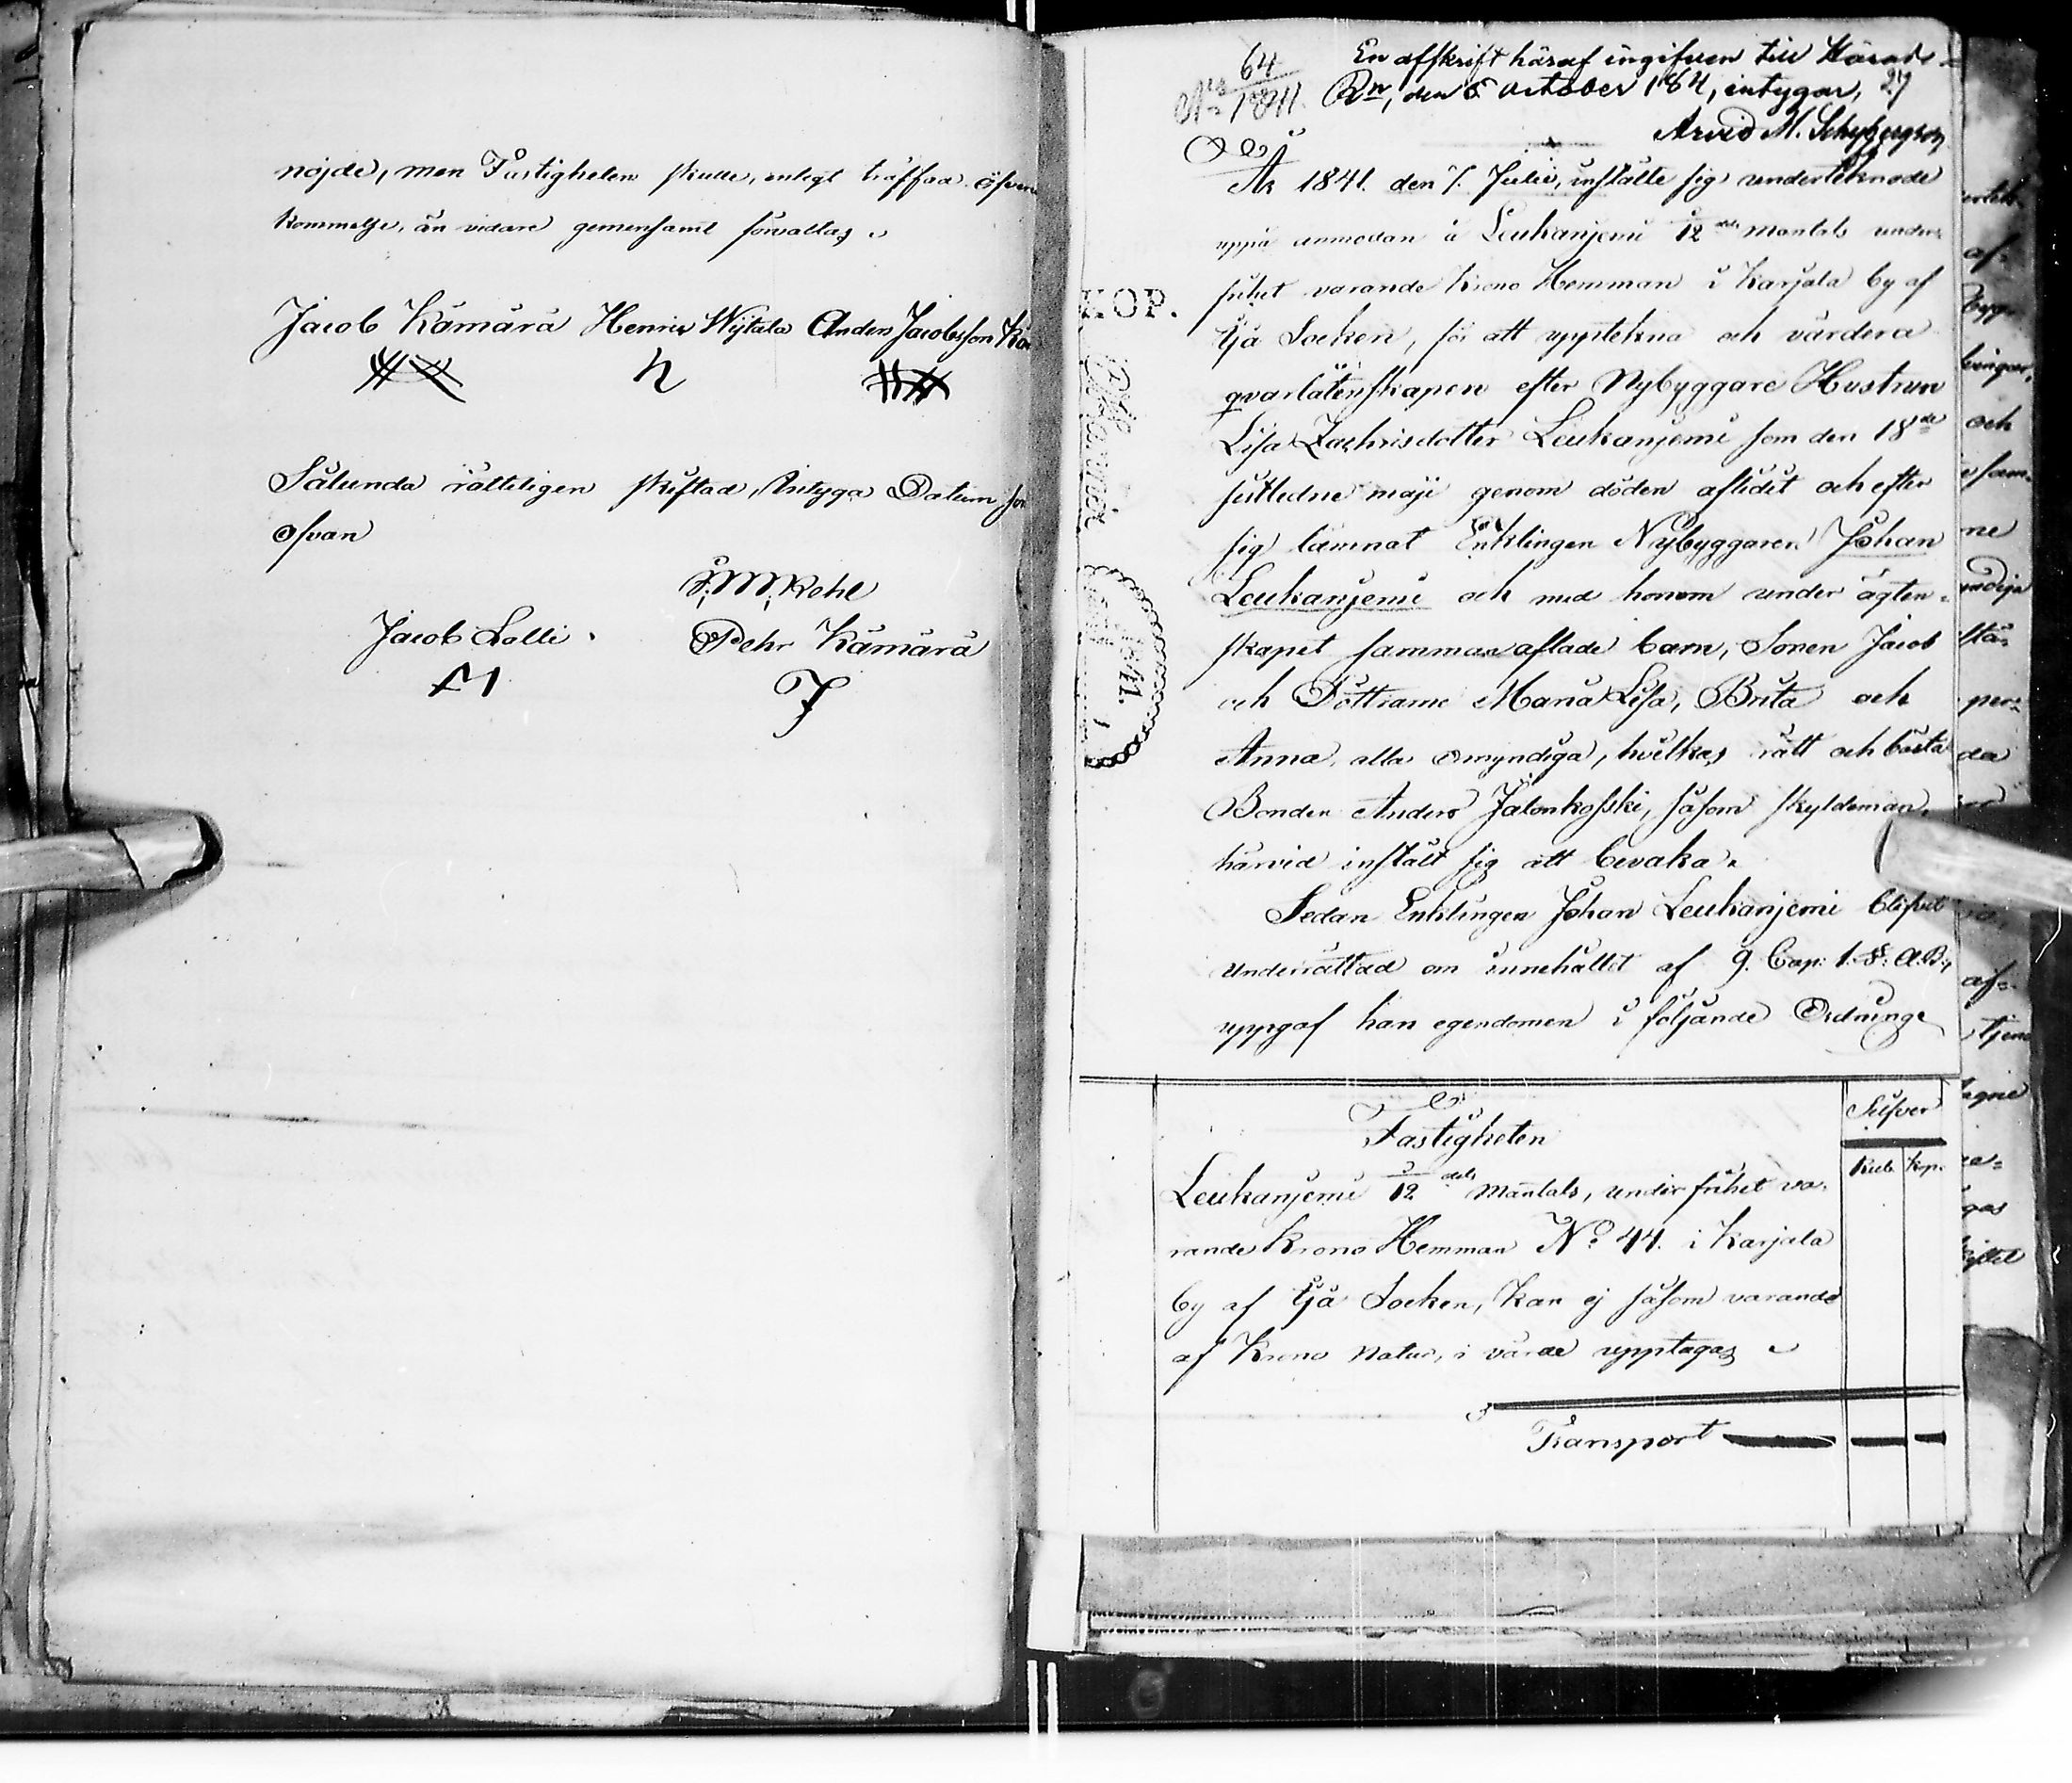 nöjde, men Fastigheten skulle, enligt träffad öfven
kommelse, än vidare gemensamt förvaltas.
Jacob Kämärä Henric Wijtala Anders Jacobsson
Sålunda rätteligen skiftad, intyga Datum
ofvan
Jacob Lolli.
Pehr Kämärä
No 64
1841.
En affskrift häraf ingifven till Härads-
Rn, den 6 October 1841, intygar, 27
Arvid M. Schybergson
År 1841. den 7. Julii, instälte sig undertecknade
uppå anmodan å Leukanjemi 5/12 dels mantals under
frihet varande Krono Hemman i Karjala by af
KOP.
Ijå Socken, för att upptekna och värdera
qvarlåtenskapen efter Nybyggare Hustrun
Lisa Zachrisdotter Leukanjemi som den 18de
sistledne maji genom döden aflidit och efter
sig lämnat Enklingen Nybyggaren Johan
Leukanjemi och med honom under ägten-
skapet sammanaflade barn, Sonen Jacob
1841.
och Döttrarne Maria Lisa, Brita och
Anna, alla omyndiga, hvilkas rätt och bästa
Bonden Anders Jalonkoski, såsom skyldeman,
härvid instält sig att bevaka.
Sedan Enklingen Johan Leukanjemi blifvit
underrättad om innehållet af 9. Cap: 1. §: A.B.,
uppgaf han egendomen i följande Ordning
Silfver
Fastigheten
Rub. Kop.
Leukanjemi 5/12 dels mantals, under frihet va-
rande Krono Hemman No 44. i Karjala
by af Ijå Socken, kan ej såsom varande
af Krono natur, i värde upptagas
Transport